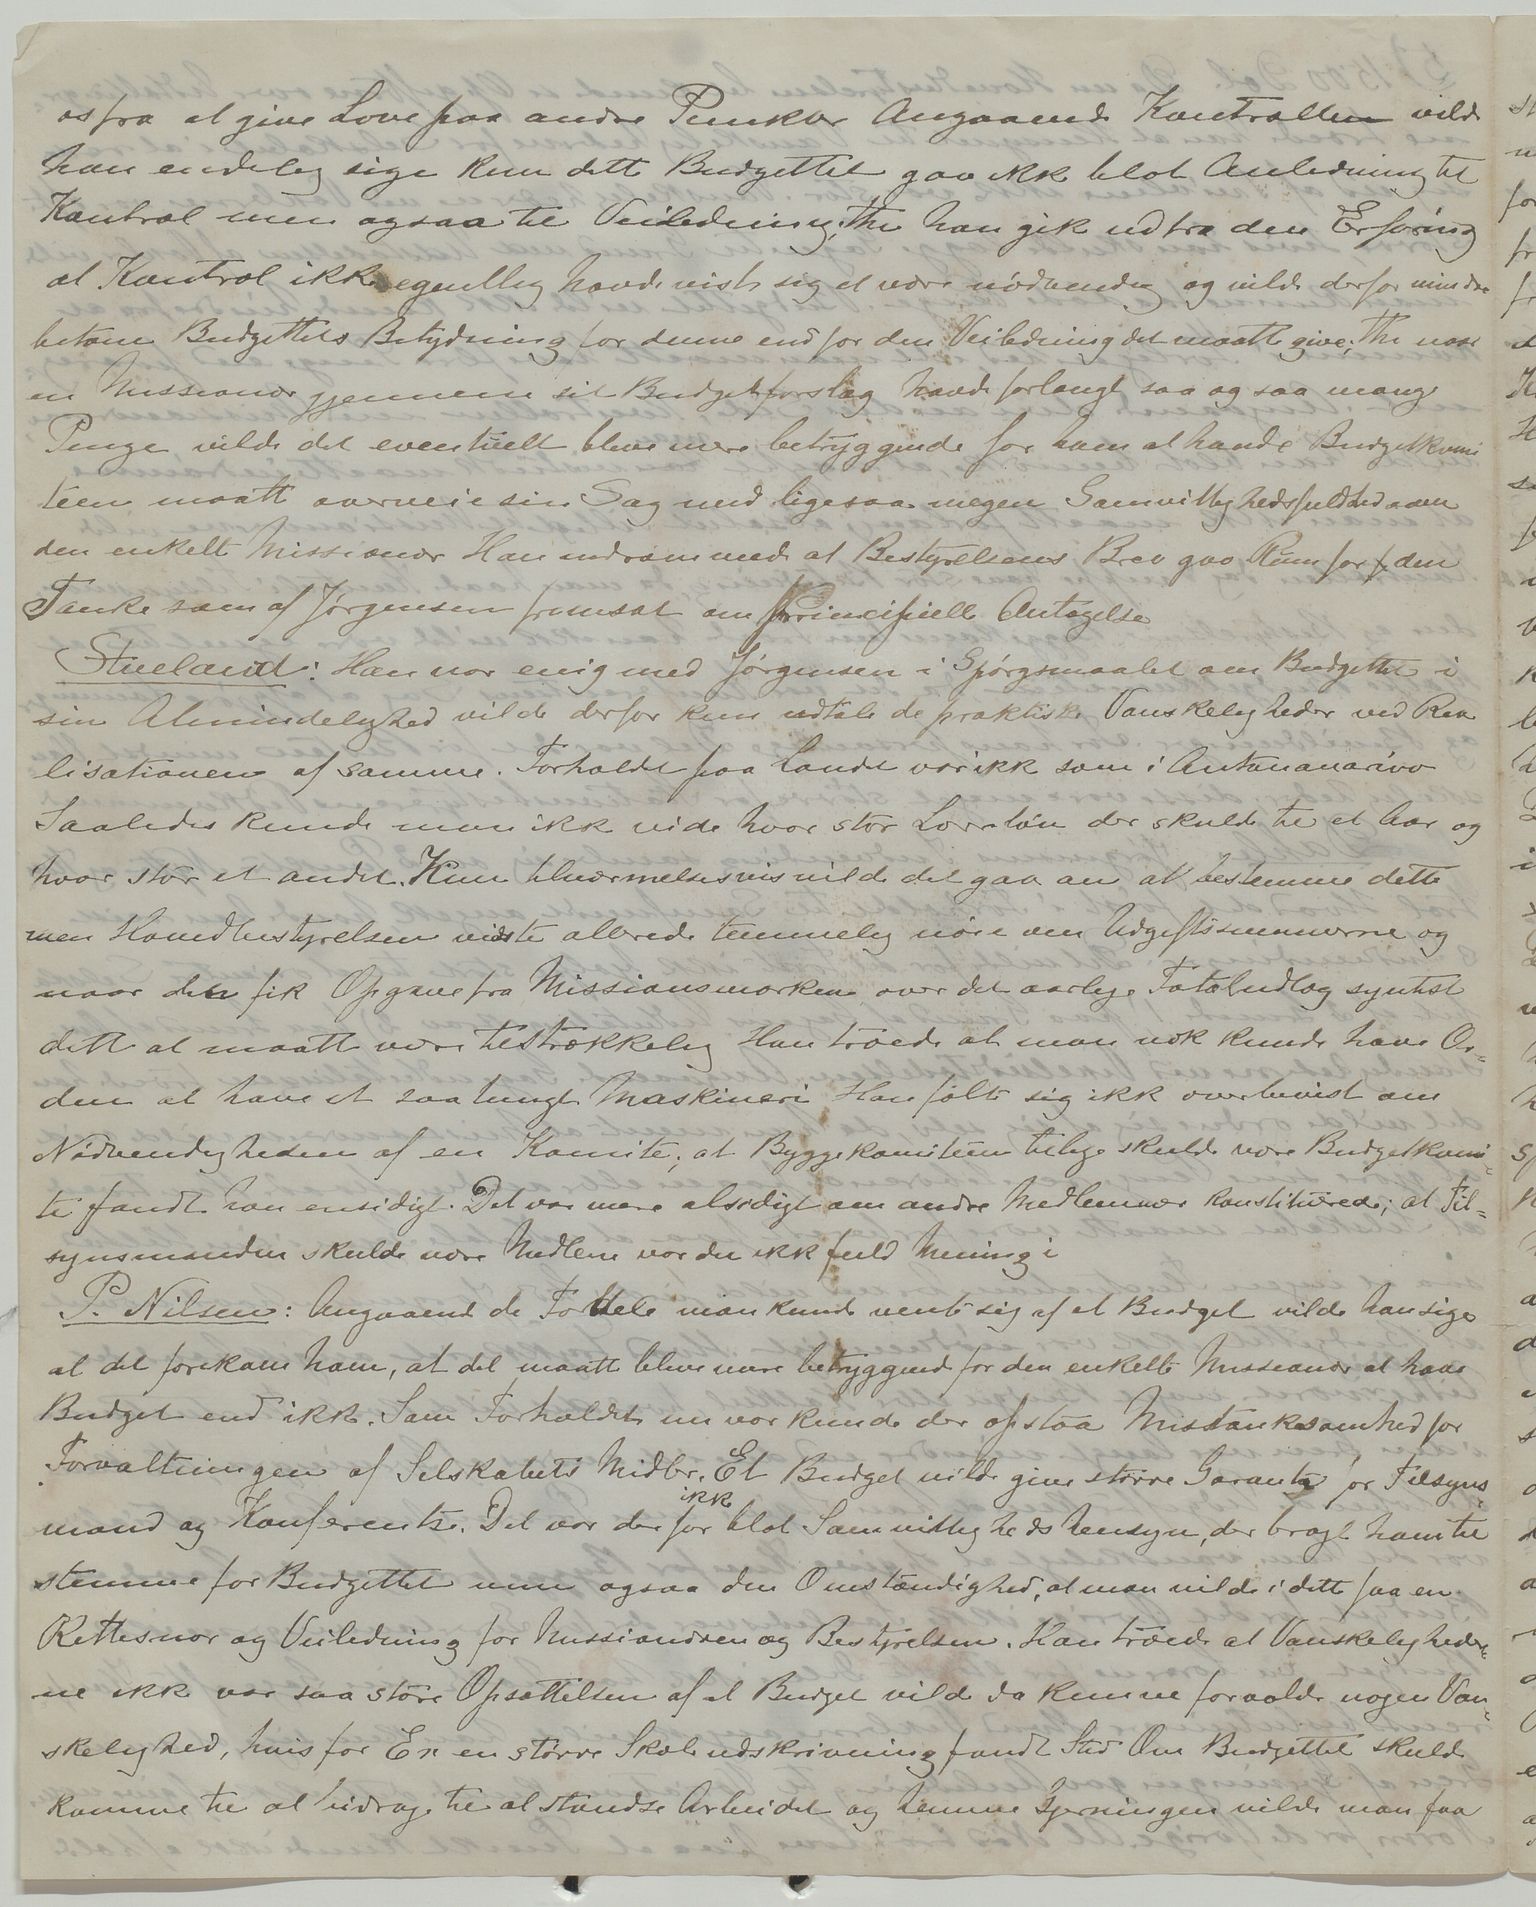 os fra at give Love paa andre Punkter Angaaende Kontrollen vilde
han endelig sige kun dette Budgettet gav ikke blot Anledning til
Kontrol men ogsaa til Veiledning; Thi han gik ud fra den Erfaring
at Kontrol ikke egentlig havde vist sig at være nødvendig og vilde derfor mindre
betone Budgettets Betydning for denne end for den Veiledning det maatte give; Thi naar
en Missionær gjennem sit Budgetforslag havde forlangt saa og saa mange
Penge vilde det eventuelt blive mere betryggende for ham at havde Budgetkomi
teen maatte overveie sin Sag med ligesaa megen Samvittighedsfuldhed som
den enkelte Missionær Han indrømmede at Bestyrelsens Brev gav Rum for den
Tanke som af Jørgensen fremsat om Principielle Antagelse
Stueland: Han var enig med Jørgensen i Spørgsmaalet om Budgettet i
sin Almindelighed vilde derfor kun udtale de praktiske Vanskeligheder ved Rea
lisationen af samme. Forholdet paa Landet var ikke som i Antananarivo
Saaledes kunde man ikke vide hvor stor Lærerløn der skulde til et Aar og
hvor stor et andet. Kun tilnærmelsesvis vilde det gaa an at bestemme dette
men Hovedbestyrelsen vidste allerede temmelig nøie om Udgiftssummerne og
naar den fik Opgave fra Missionsmarken over det aarlige Totaludlæg syntes
dette at maatte være tilstrækkelig Han troede at man nok kunde have Or-
den at have et saa tungt Maskineri Han følte sig ikke overbevist om
Nødvendigheden af en Komite; at Byggekomiteen tillige skulde være Budgetkomi-
te fandt han ensidigt. Det var mere alsidigt om andre Medlemmer konstituerede; at Til-
synsmanden skulde være Medlem var der ikke fuld Mening i
P. Nilsen: Angaaende de Fordele man kunde vente sig af et Budget vilde han sige
at det forekom ham, at det maatte blive mere betryggende for den enkelte Missionær at have
Budget end ikke. Som Forholdet nu var kunde der opstaa Mistænksomhed for
Forvaltningen af Selskabets Midler. Et Budget vilde give større Garanti for Tilsyns-
mand og Konferents. Det var derfor ikke blot Samvittighedshensyn, der bragte ham til
stemme for Budgettet men ogsaa den Omstændighed, at man vilde i dette faa en
Rettesnor og Veiledning for Missionæren og Bestyrelsen. Han troede at Vanskelighder-
ne ikke var saa store Opsættelsen af et Budget vilde da kunne forvolde nogen Van-
skelighed, hvis for Ex en større Skoleudskrivning fandt Sted Om Budgettet skulde
komme til at bidrage til at standse Arbeidet og hemme Gjerningen vilde man faa